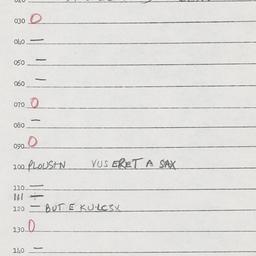 030 0
040 —
050 —
060 —
070 0
080 —
090 0
100 PLOUSHN VUS ERET A SAX
110 —
111 —
120 — BUT E
130 0
140 —